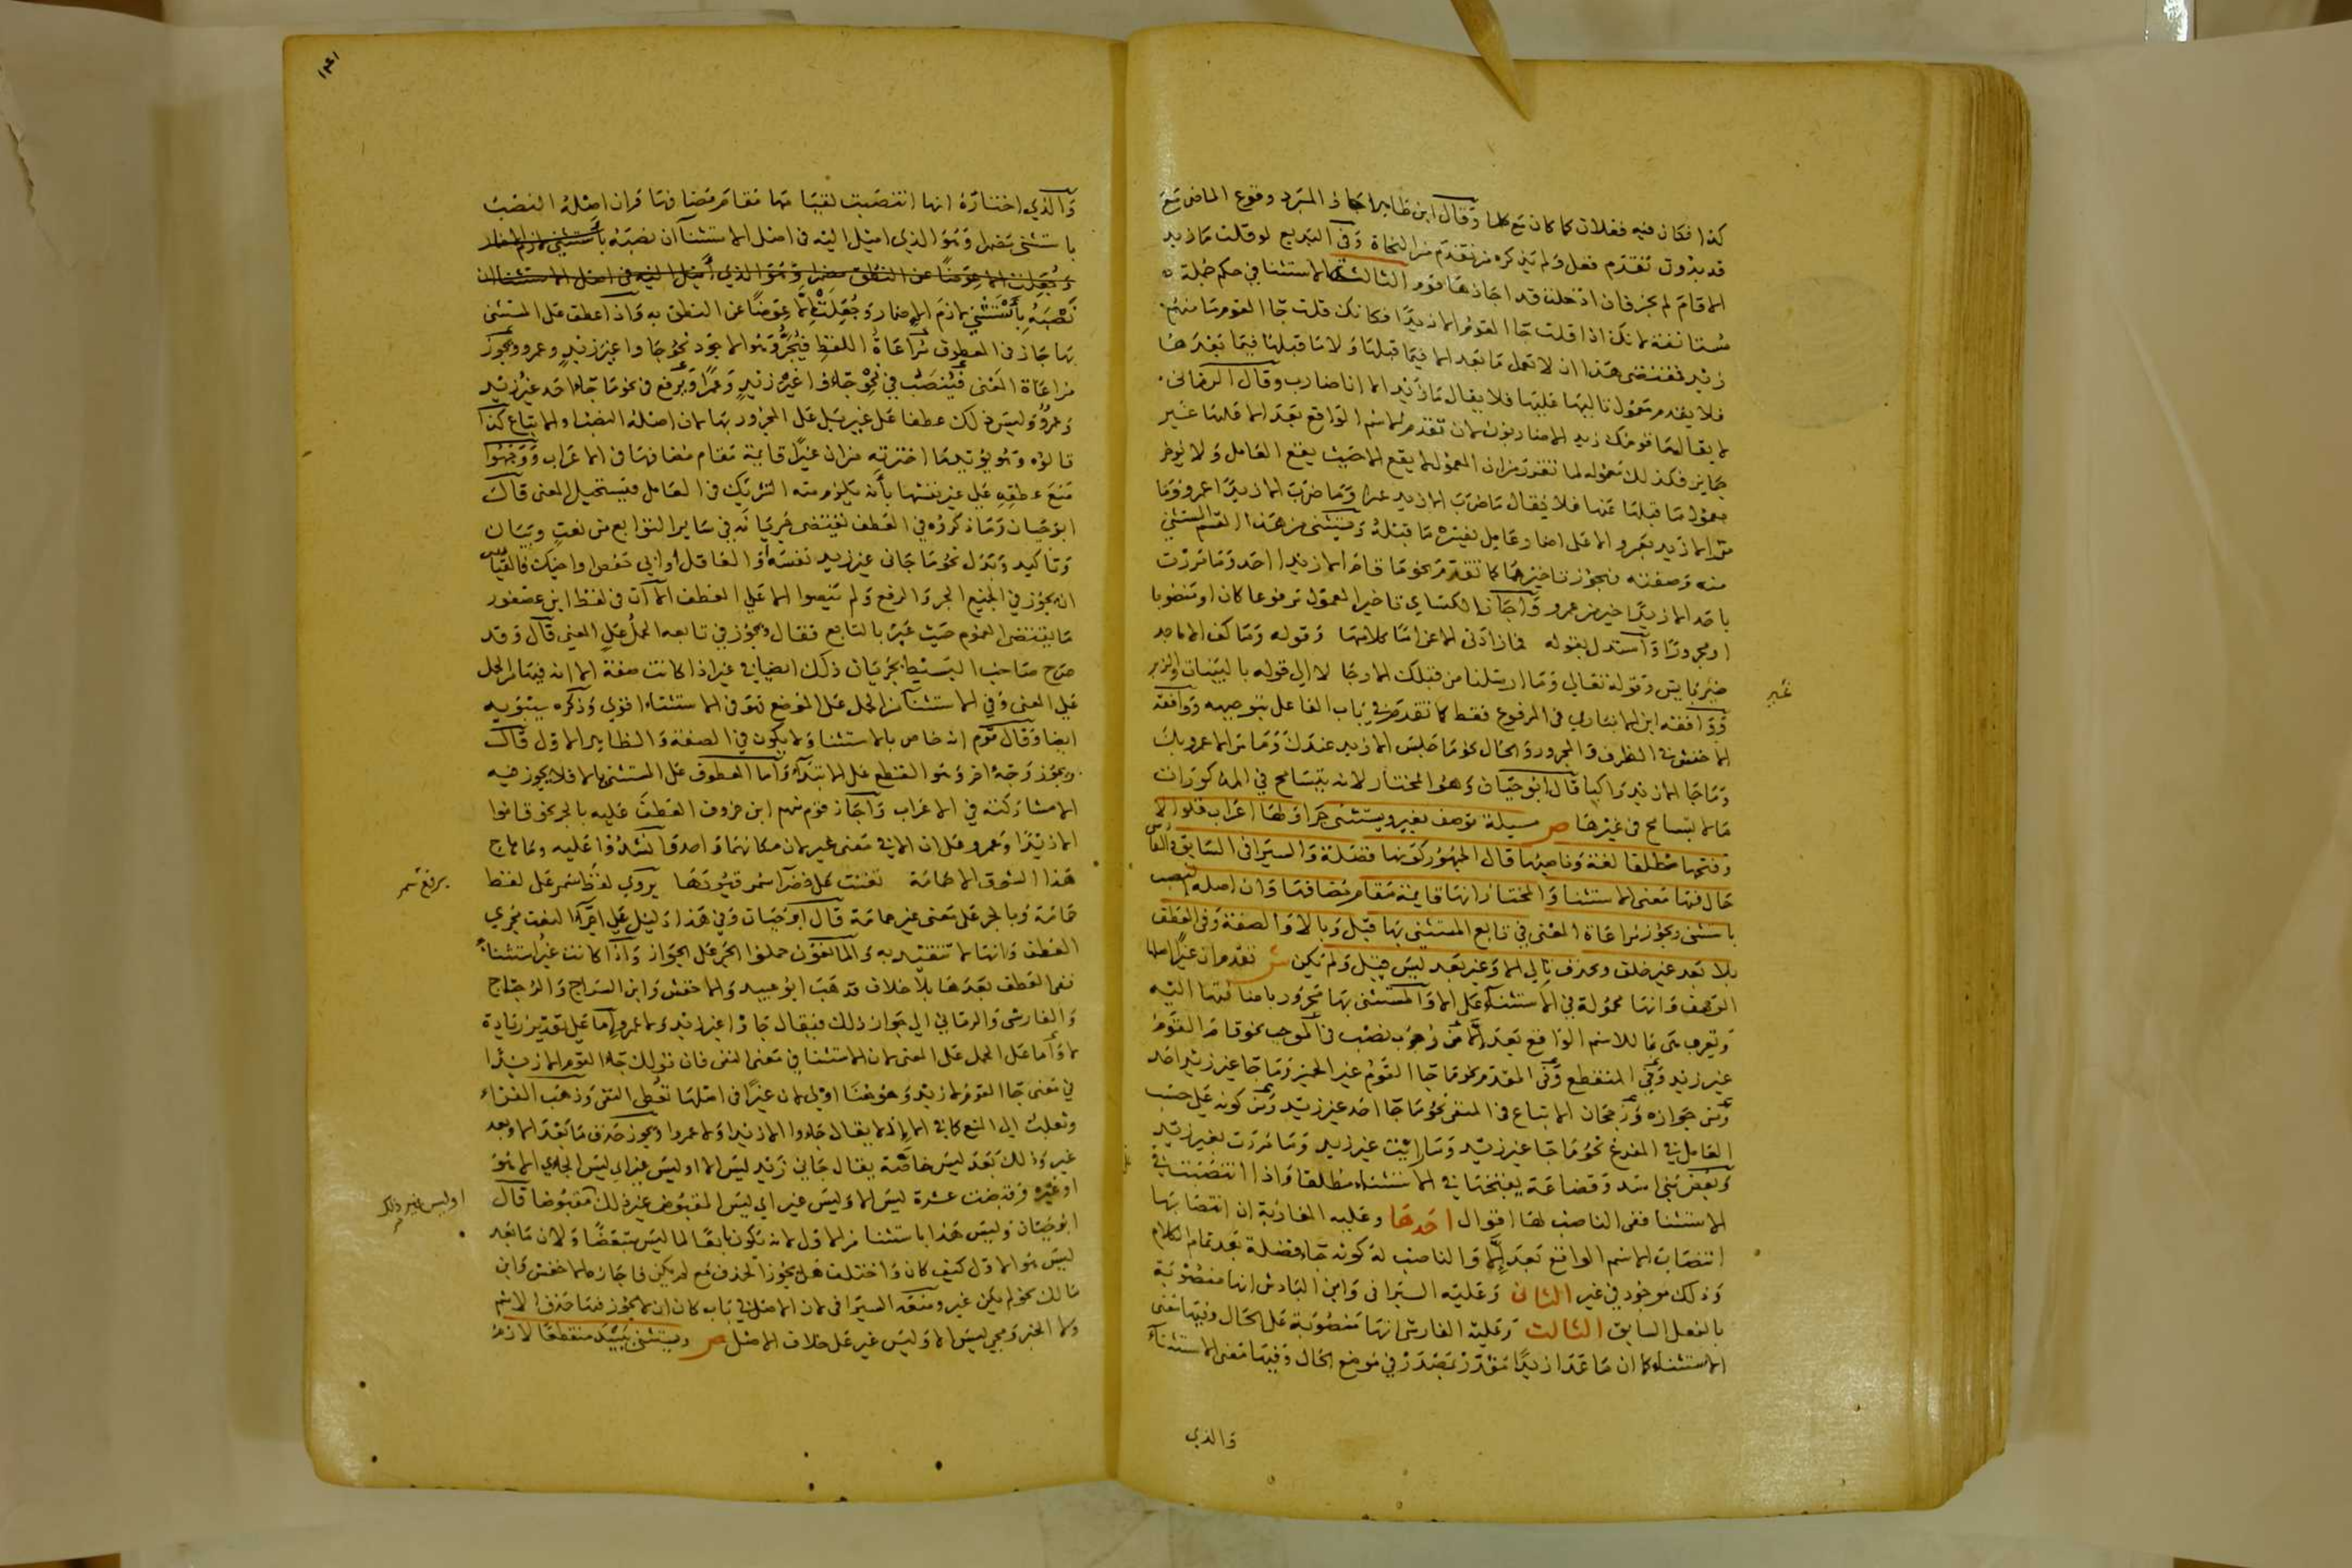 كذا فكان فيه فعلان كما كان مع كلما وقال ابن طاهر اجاز المبرد وقوع الماضي مع
قد بدون تقدم فعل ولم يذكره من تقدم من النحاة وفي البديع لو قلت ما زيد
الا قام لم يجز فان ادخلت قد اجازها قوم الثالثة الاستثنا في حكم جملة
مستانفة لانك اذا قلت جا القوم الا زيدا فكانك قلت جا القوم ما منهم
زيد فمقتضى هذا ان لا يعمل ما بعد الا فيما قبلها ولا ما قبلها فيما بعدها
فلا يقدم معمول تاليها عليها فلا يقال ما زيد الا انا ضارب وقال الرماني
لا يقال ما قومك زيد الا ضاربون لان تقدم الاسم الواقع بعد الا عليها غير
جايز فكذلك معموله لما تقرر من ان المعمول لا يقع الا حيث يقع العامل ولا يوخر
معمول ما قبلها عنها فلا يقال ما ضرب الا زيد عمرا وما ضرب الا زيدا عمرو وما
مر الا زيد بعمرو الا على اضمار عامل يفسره ما قبله ويستثنى من هذا القسم المستثنى
منه وصفته فيجوز تاخيرهما كما تقدم نحو ما قام الا زيدا احد وما مررت
باحد الا زيدا خير من عمرو واجاز الكساي تاخير المعمول مرفوعا كان او منصوبا
او مجرورا واستدل بقوله فما زادني الا غراما كلامها وقوله وما كف الا ماجد
ضير بايس وقوله تعالى وما ارسلنا من قبلك الا رجالا الى قوله بالبينات والزبر
ووافقه ابن الانباري في المرفوع فقط كما تقدم في باب الفاعل بتوجيهه ووافقه
الاخفش في الظرف والمجرور والحال نحو ما جلس الا زيد عندك وما مر الا عمرو بك
وما جا الا زيد راكبا قال ابو حيان وهو المختار لانه يتسامح في المذكورات
ما لا يتسامح في غيرها ص مسيلة توصف بغير ويستثنى جرا ولها اعراب تلو الا
وفتحها مطلقا لغة وناصبها قال الجمهور كونها فضلة والسيرافي السابق والفارسي
حال فيها معنى الاستثنا والمختار انها قايمة مقام مضافها وان اصله النصب
باستثنى ويجوز مراعاة المعنى في تابع المستثنى بها قيل وبالا والصفة وفي العطف
بلا بعد غير خلف ويحذف تالي الا وغير بعد ليس قيل ولم يكن ش تقدم ان غيرا اصلها
الوصف وانها محمولة في الاستثناء على الا والمستثنى بها مجرور باضافتها اليه
وتعرب هي بما للاسم الواقع بعد الا من وجوب نصب في الموجب نحو قام القوم
غير زيد وفي المنقطع وفي المقدم نحو ما جا القوم غير الحمير وما جا غير زيد احد
ومن جوازه ورجحان الاتباع في المنفي نحو ما جا احد غير زيد ومن كونه على حسب
العامل في المفرغ نحو ما جا غير زيد وما رايت غير زيد وما مررت بغير زيد
وبعض بني اسد وقضاعة يفتحها في الاستثناء مطلقا واذا انتصبت في
الاستثنا ففي الناصب لها اقوال احدها وعليه المغاربة ان انتصابها
انتصاب الاسم الواقع بعد الا والناصب له كونه جا فضلة بعد تمام الكلام
وذلك موجود في غير الثاني وعليه السيرافي وابن الباذش انها منصوبة
بالفعل السابق الثالث وعليه الفارسي انها منصوبة على الحال وفيها معنى
الاستثناء كما ان ما عدا زيدا مقدر بمصدر في موضع الحال وفيها معنى الاستثناء
والذي
غير
١٤١
والذي اختاره انها انتصبت لقيامها مقام مضافها وان اصله النصب
باستثنى مضمرا وهو الذي اميل اليه في اصل الاستثنا ان نصبه باستثنى لازم اضمار
وجعلت الا عوضا عن النطق مضمرا وهو الذي اميل اليه في اصل الاستثنا ان
نصبه باستثنى لازم الاضمار وجعلت الا عوضا عن النطق به واذا عطف على المستثنى
بها جاز في المعطوف مراعاة اللفظ فيجر وهو الاجود نحو جاوا غير زيد وعمرو ويجوز
مراعاة المعنى فينصب في نحو جاوا غير زيد وعمرا ويرفع في نحو ما جاء احد غير زيد
وعمرو وليس ذلك عطفا على غير بل على المجرور بها لان اصله النصب او الاتباع كذا
قالوه وهو يويد ما اخترته من ان غيرا قايمة مقام مضافها في الاعراب ووجهوا
منع عطفه على غير نفسها بانه يلزم منه التشريك في العامل فيستحيل المعنى قال
ابو حيان وما ذكروه في العطف يقتضي جريانه في ساير التوابع من نعت وبيان
وتاكيد وبدل نحو ما جاني غير زيد نفسه او العاقل او ابي حفص او اخيك فالقياس
ان يجوز في الجميع الجر والرفع ولم ينصوا الا على العطف الا ان في لفظ ابن عصفور
ما يقتضي العموم حيث عبر بالتابع فقال ويجوز في تابعه الحمل على المعنى قال وقد
صرح صاحب البسيط بجريان ذلك ايضا في غير اذا كانت صفة الا انه فيها من الحمل
على المعنى وفي الاستثنا من الحمل على الموضع فهو في الاستثناء اقوى وذكره سيبويه
ايضا وقال قوم انه خاص بالاستثنا ولا يكون في الصفة والظاهر الاول قال
ويجوز وجه اخر وهو القطع على الابتداء واما المعطوف على المستثنى بالا فلا يجوز فيه
الا مشاركته في الاعراب واجاز قوم منهم ابن خروف العطف عليه بالجر نحو قاموا
الا زيدا وعمرو على ان الا في معنى غير لان مكانهما واحد قال وانشدوا عليه وما هاج
هذا الشوق الا حمامة تغنت على خضرا سمر قيودها يروي لفظ سمر على لفظ
حمامة وبالجر على معنى غير حمامة قال ابو حيان وفي هذا دليل على اجراء النعت مجرى
العطف وانها لا تتقيد به والمانعون حملوا الجر على الجواز واذا كانت غير استثناء
ففي العطف بعدها بلا خلاف فذهب ابو عبيد والاخفش وابن السراج والزجاج
والفارسي والرماني الى جواز ذلك فيقال جاوا غير زيد ولا عمرو اما على تقدير زيادة
لا واما على الحمل على المعنى لان الاستثنا في معنى النفي فان قولك جاء القوم الا زيدا
في معنى جا القوم لا زيد وهو هنا اولى لان غيرا في اصلها تعطي النفي وذهب الفراء
وثعلب الى المنع كما في الا اذ لا يقال جاءوا الا زيدا ولا عمرا ويجوز حذف ما بعد الا وبعد
غير وذلك بعد ليس خاصة يقال جاني زيد ليس الا وليس غير اي ليس الجاءي الا هو
او غيره وقبضت عشرة ليس الا وليس غير اي ليس المقبوض غير ذلك مقبوضا قال
ابو حيان وليس هذا باستثنا من الاول لانه يكون تابعا لما ليس متبعضا ولان ما بعد
ليس هو الاول كيف كان واختلف هل يجوز الحذف مع لم يكن فاجازه الاخفش وابن
مالك نحو لم يكن غير ومنعه السيرافي لان الاصل في باب كان ان لا يجوز فيها حذف الاسم
ولا الخبر ومجي ليس الا وليس غير على خلاف الاصل ص ويستثنى ببيد منقطعا لازم
برفع سمر
او ليس غير ذلك